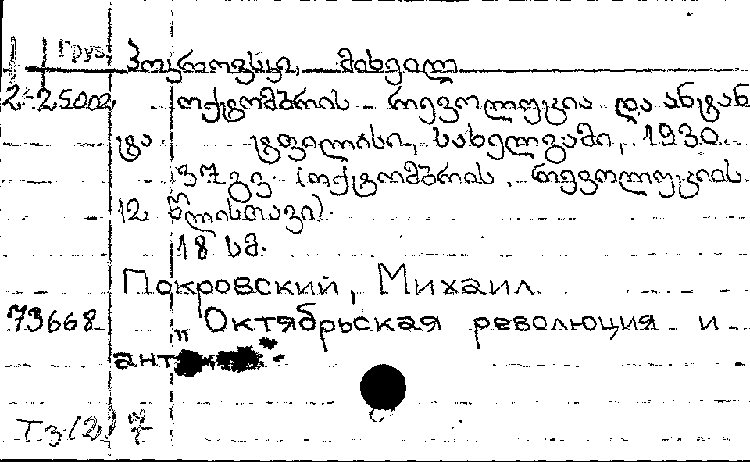 Груз.
პოკროვსკი, მიხეილ
2-25002 ოქტომბრის რევოლუცია და ანტან
ტა ტფილისი, სახელგამი, 1930.
37 გვ. (ოქტომბრის რევოლუციის
12 წლისთავი).
18 სმ.
Покровский, Михаил.
73668 "Октябрьская революция и
ант
Т.з(2)